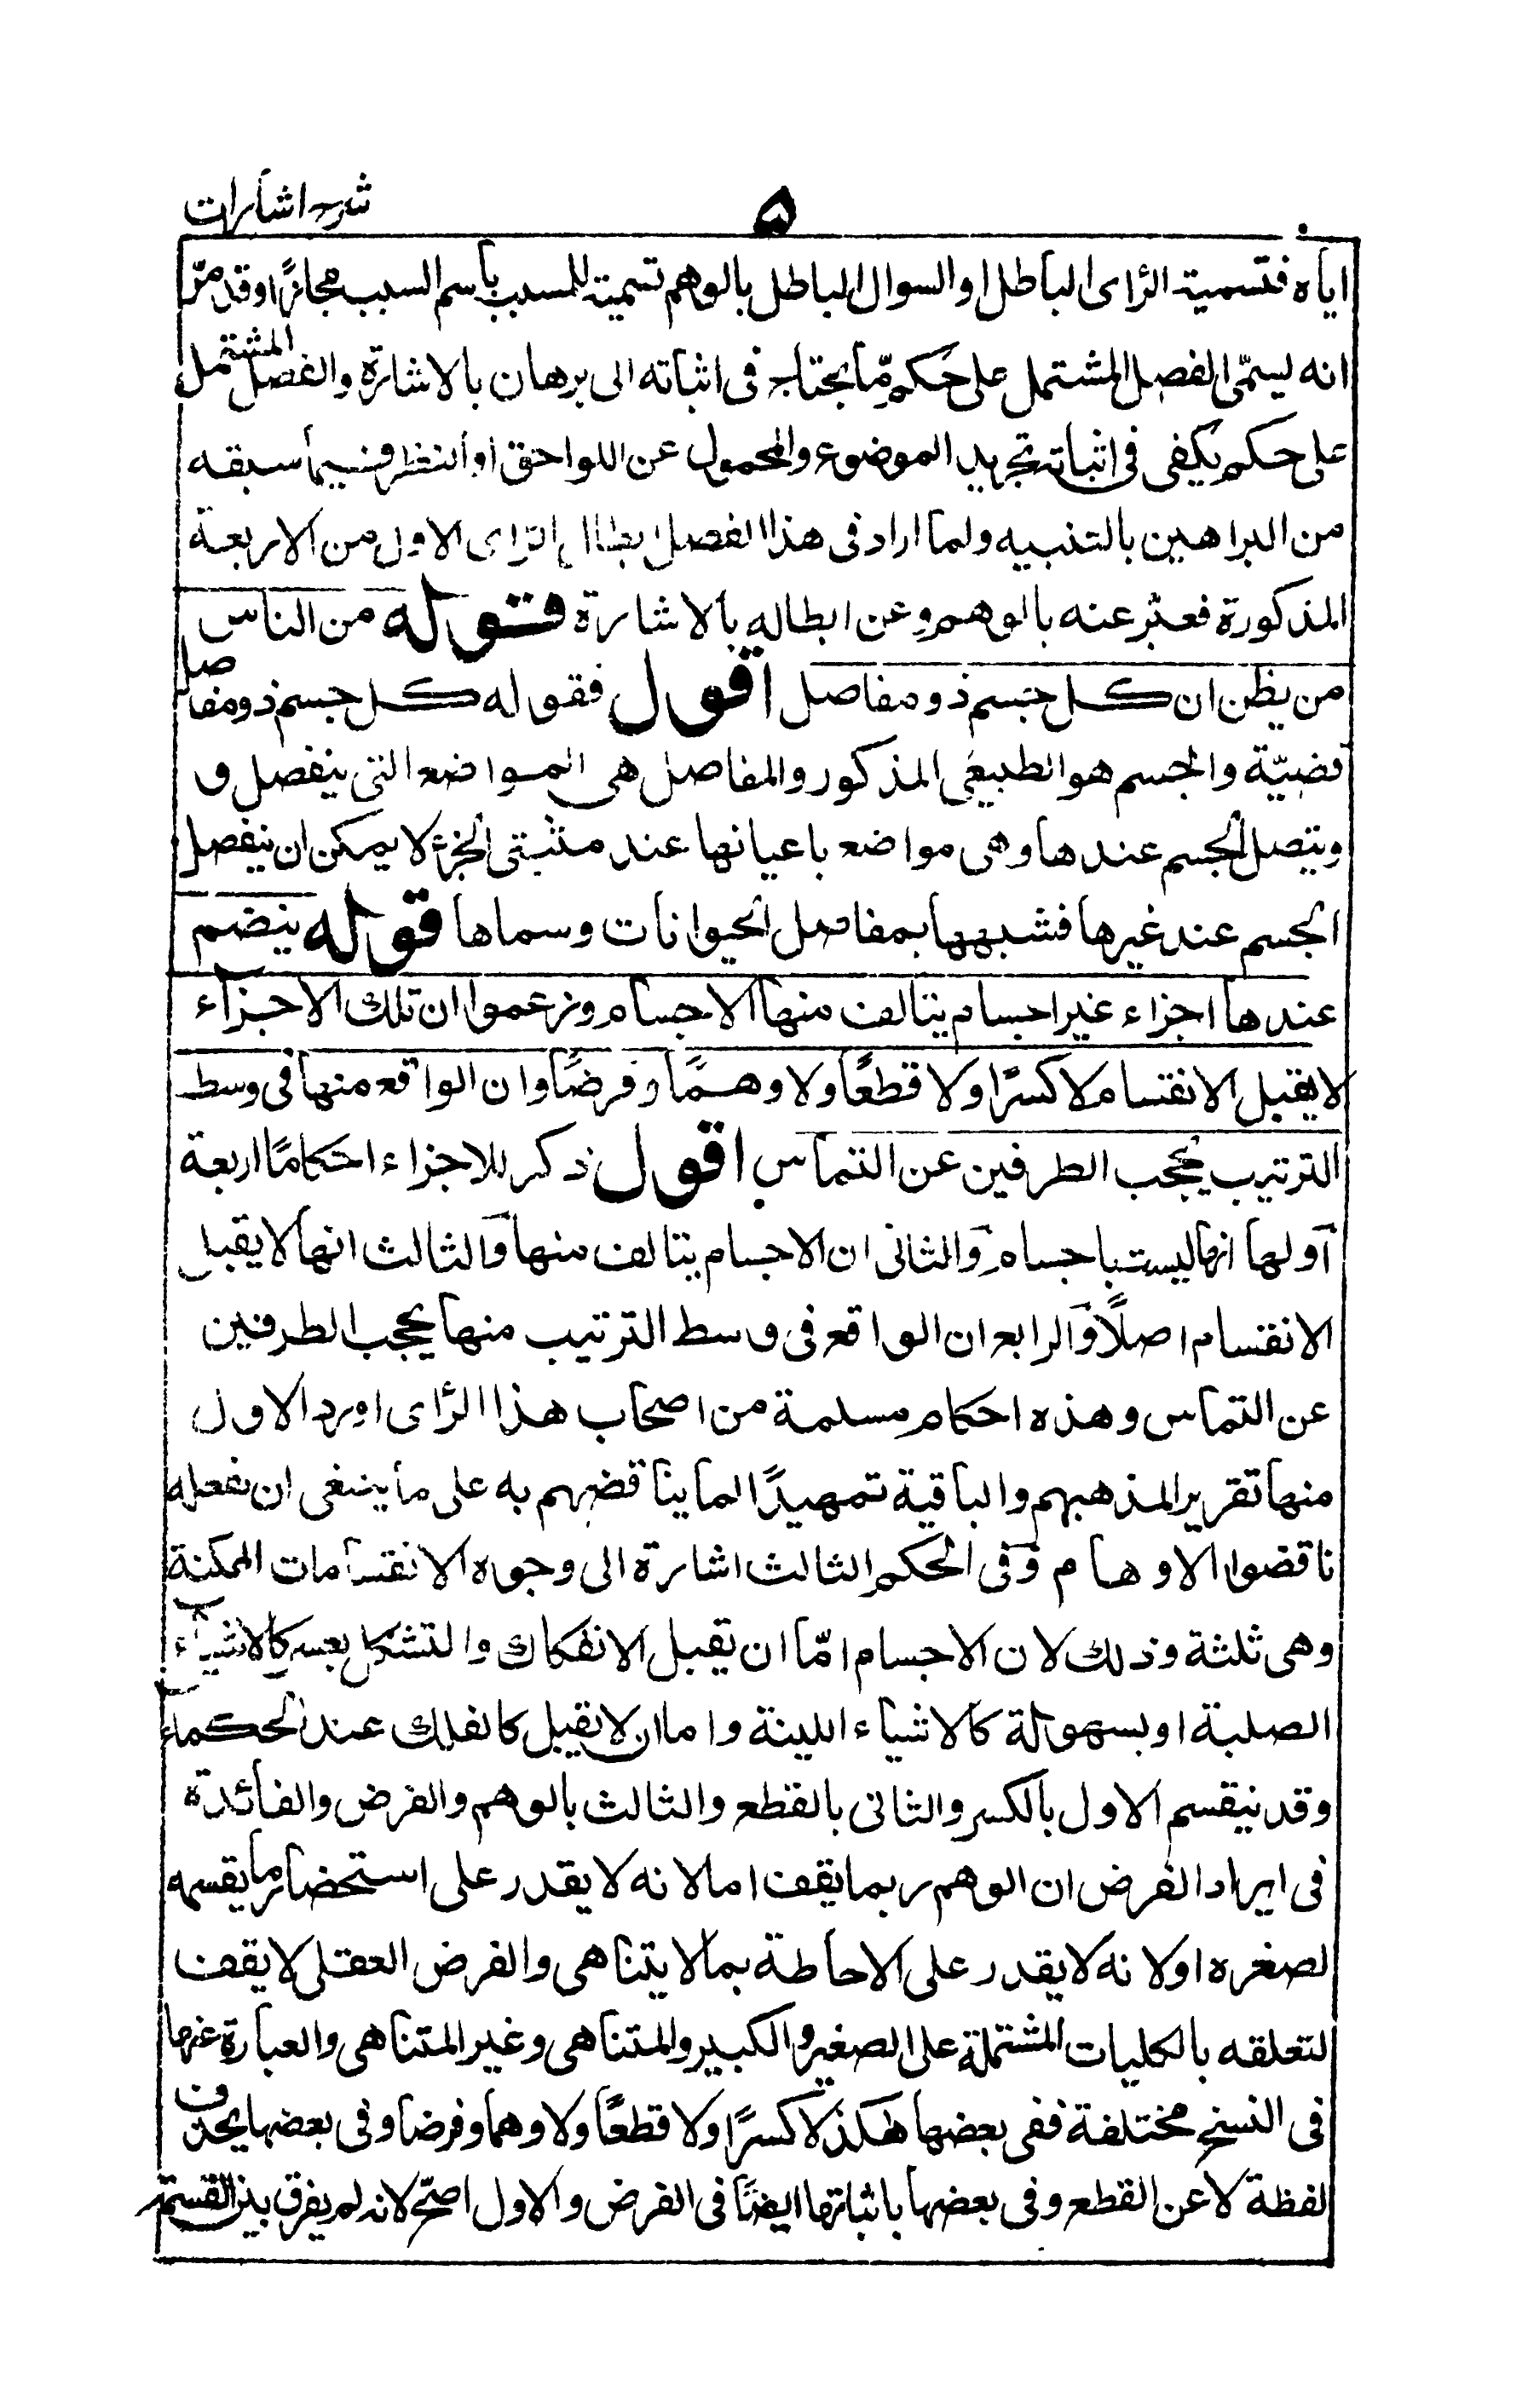 شرح اشارات
۵
اياه فتسمية الرّاى الباطل او السوال الباطل بالوهم تسمية للمسبب باسم السبب مجازًا وقد مرّ
انه يسمّى الفصل المشتمل على حكم مّا يحتاج فى اثباته الى برهان بالاشارة والفصل المشتمل
على حكم يكفى فى اثباته تجريد الموضوع والمحمول عن اللواحق او النظر فيما سبقه
من البراهين بالتنبيه ولما اراد فى هذا الفصل ابطال الرّاى الاول من الاربعة
المذكورة فعبّر عنه بالوهم وعن ابطاله بالاشارة قوله من الناس
من يظن ان كل جسم ذو مفاصل اقول فقوله كل جسم ذو مفاصل
قضيّة والجسم هو الطبيعى المذكور والمفاصل هى المواضع التى ينفصل و
ويتصل الجسم عندها وهى مواضع باعيانها عند مثبتى الجزء لا يمكن ان ينفصل
الجسم عند غيرها فشبهها بمفاصل الحيوانات وسماها قوله ينضم
عندها اجزاء غير اجسام يتالف منها الاجسام وزعموا ان تلك الاجزاء
لا يقبل الانقسام لا كسرًا ولا قطعًا ولا وهمًا و فرضًا وان الواقع منها فى وسط
الترتيب يحجب الطرفين عن التماس اقول ذكر للاجزاء احكامًا اربعة
اولها انها ليست باجسام والثانى ان الاجسام يتالف منها والثالث انها لا يقبل
الانقسام اصلًا والرابع ان الواقع فى وسط الترتيب منها يحجب الطرفين
عن التماس وهذه احكام مسلمة من اصحاب هذا الرّاى اورد الاول
منها تقرير المذهبهم والباقية تمهيدًا لما يناقضهم به على ما ينبغى ان نفعله
ناقضوا الاوهام وفى الحكم الثالث اشارة الى وجوه الانقسامات الممكنة
وهى ثلثة وذلك لان الاجسام امّا ان يقبل الانفكاك والتشكل بعسر كالاشياء
الصلبة او بسهولة كالاشياء اللينة واما ان لا يقبل كالفلك عند الحكماء
وقد ينقسم الاول بالكسر والثانى بالقطع والثالث بالوهم والفرض والفائدة
فى ايراد الفرض ان الوهم ربما يقف اما لانه لا يقدر على استحضار ما يقسمه
لصغره او لانه لا يقدر على الاحاطة بما لا يتناهى والفرض العقلى لا يقف
لتعلقه بالكليات المشتملة على الصغير والكبير والمتناهى وغير المتناهى والعبارة عنها
فى النسخ مختلفة ففى بعضها هكذا لا كسرًا ولا قطعًا ولا وهما وفرضا وفى بعضها يحذف
لفظة لا عن القطع وفى بعضها باثباتها ايضًا فى الفرض والاول اصحّ لانه لم يفرق بين القسمة